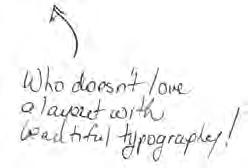 Who doesn't love
a layout with
beautiful typography!